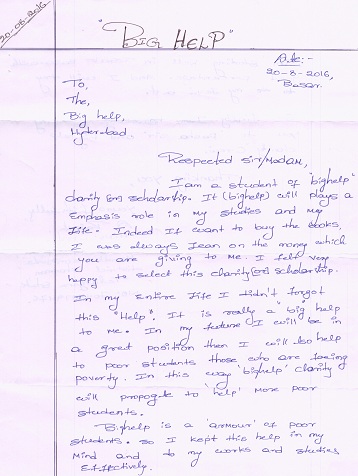 20-08-2016
"BIG HELP"
Date:-
20-8-2016,
Basar.
To,
The,
Big help,
Hyderabad.
Respected Sir/Madam,
I am a student of "bighelp"
charity (or) scholarship. It (bighelp) will plays a
Emphasis role in my studies and my
Life. Indeed If want to buy the books,
I was always lean on the money which
you are giving to me. I felt very
happy to select this charity (or) scholarship.
In my Entire Life I didn't forgot
this "Help". It is really a "big help
to me. In my future I will be in
a great position then I will also help
to poor students those who are facing
poverty. In this way 'bighelp' charity
will propogate to 'help' more poor
students.
Bighelp is a 'armour' of poor
students. so I kept this help in my
Mind and to my works and studies
Effectively.